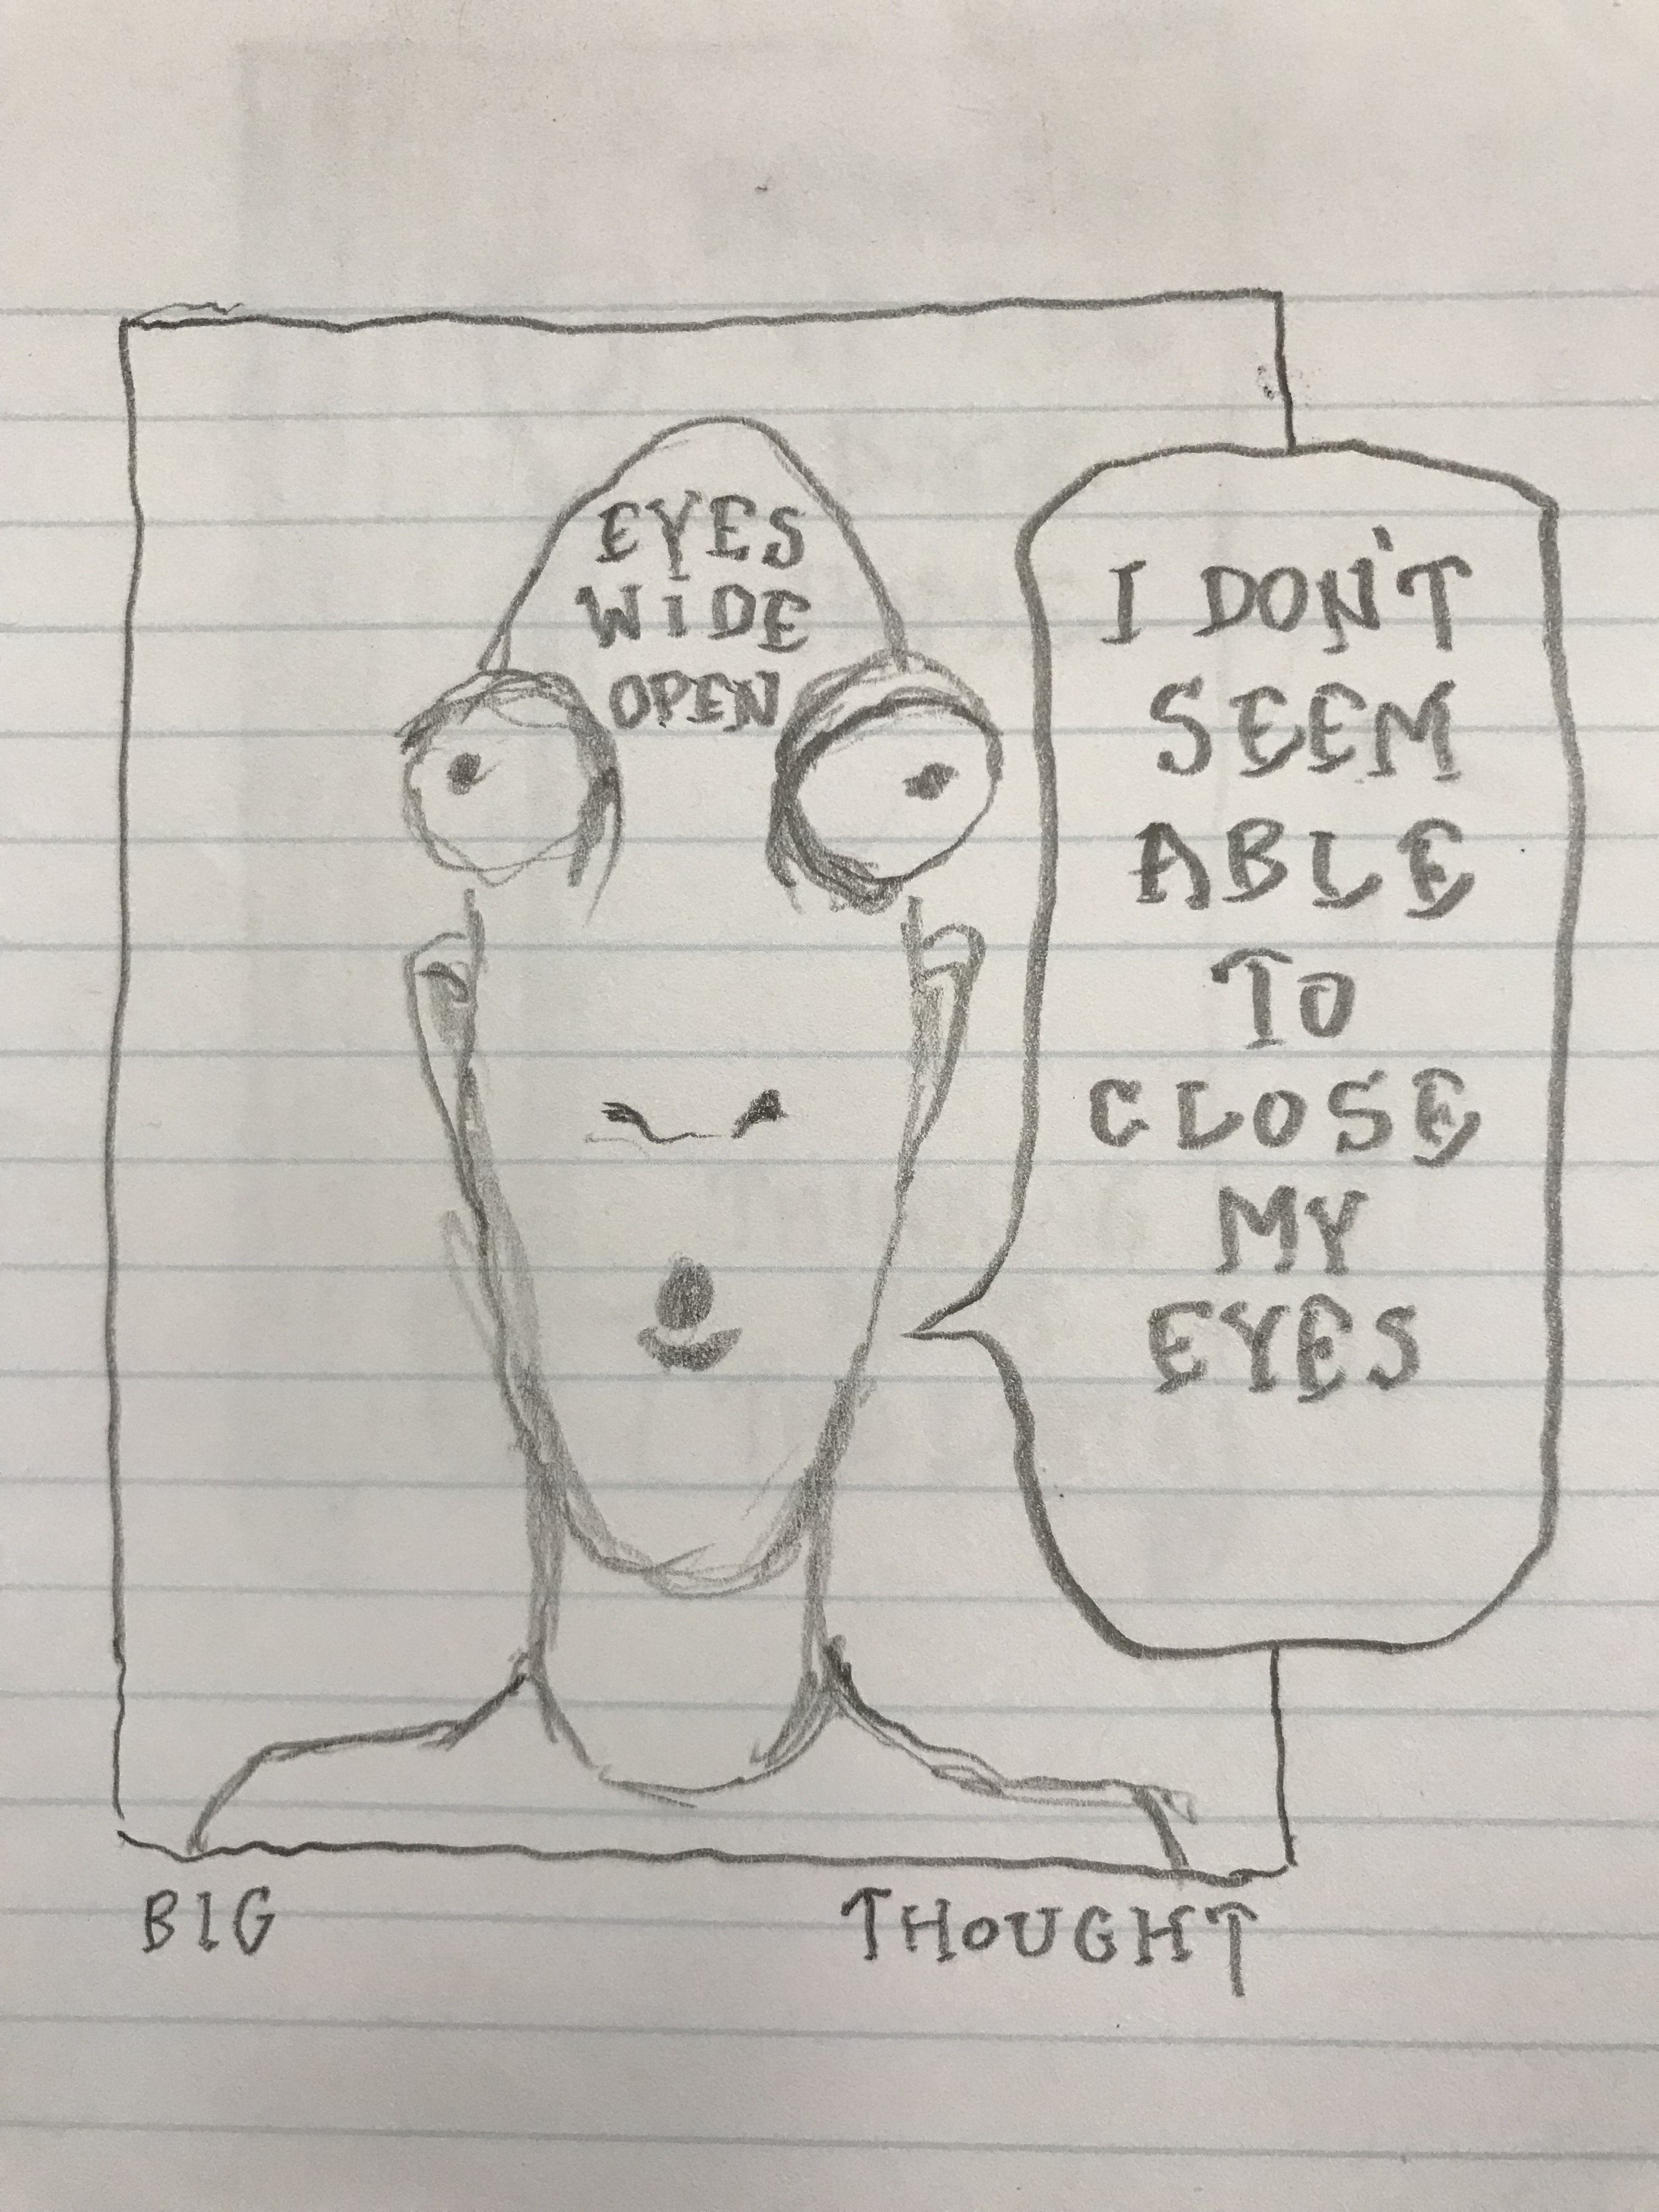 EYES
WIDE
OPEN
I DON'T
SEEM
ABLE
TO
CLOSE
MY
EYES
BIG THOUGHT